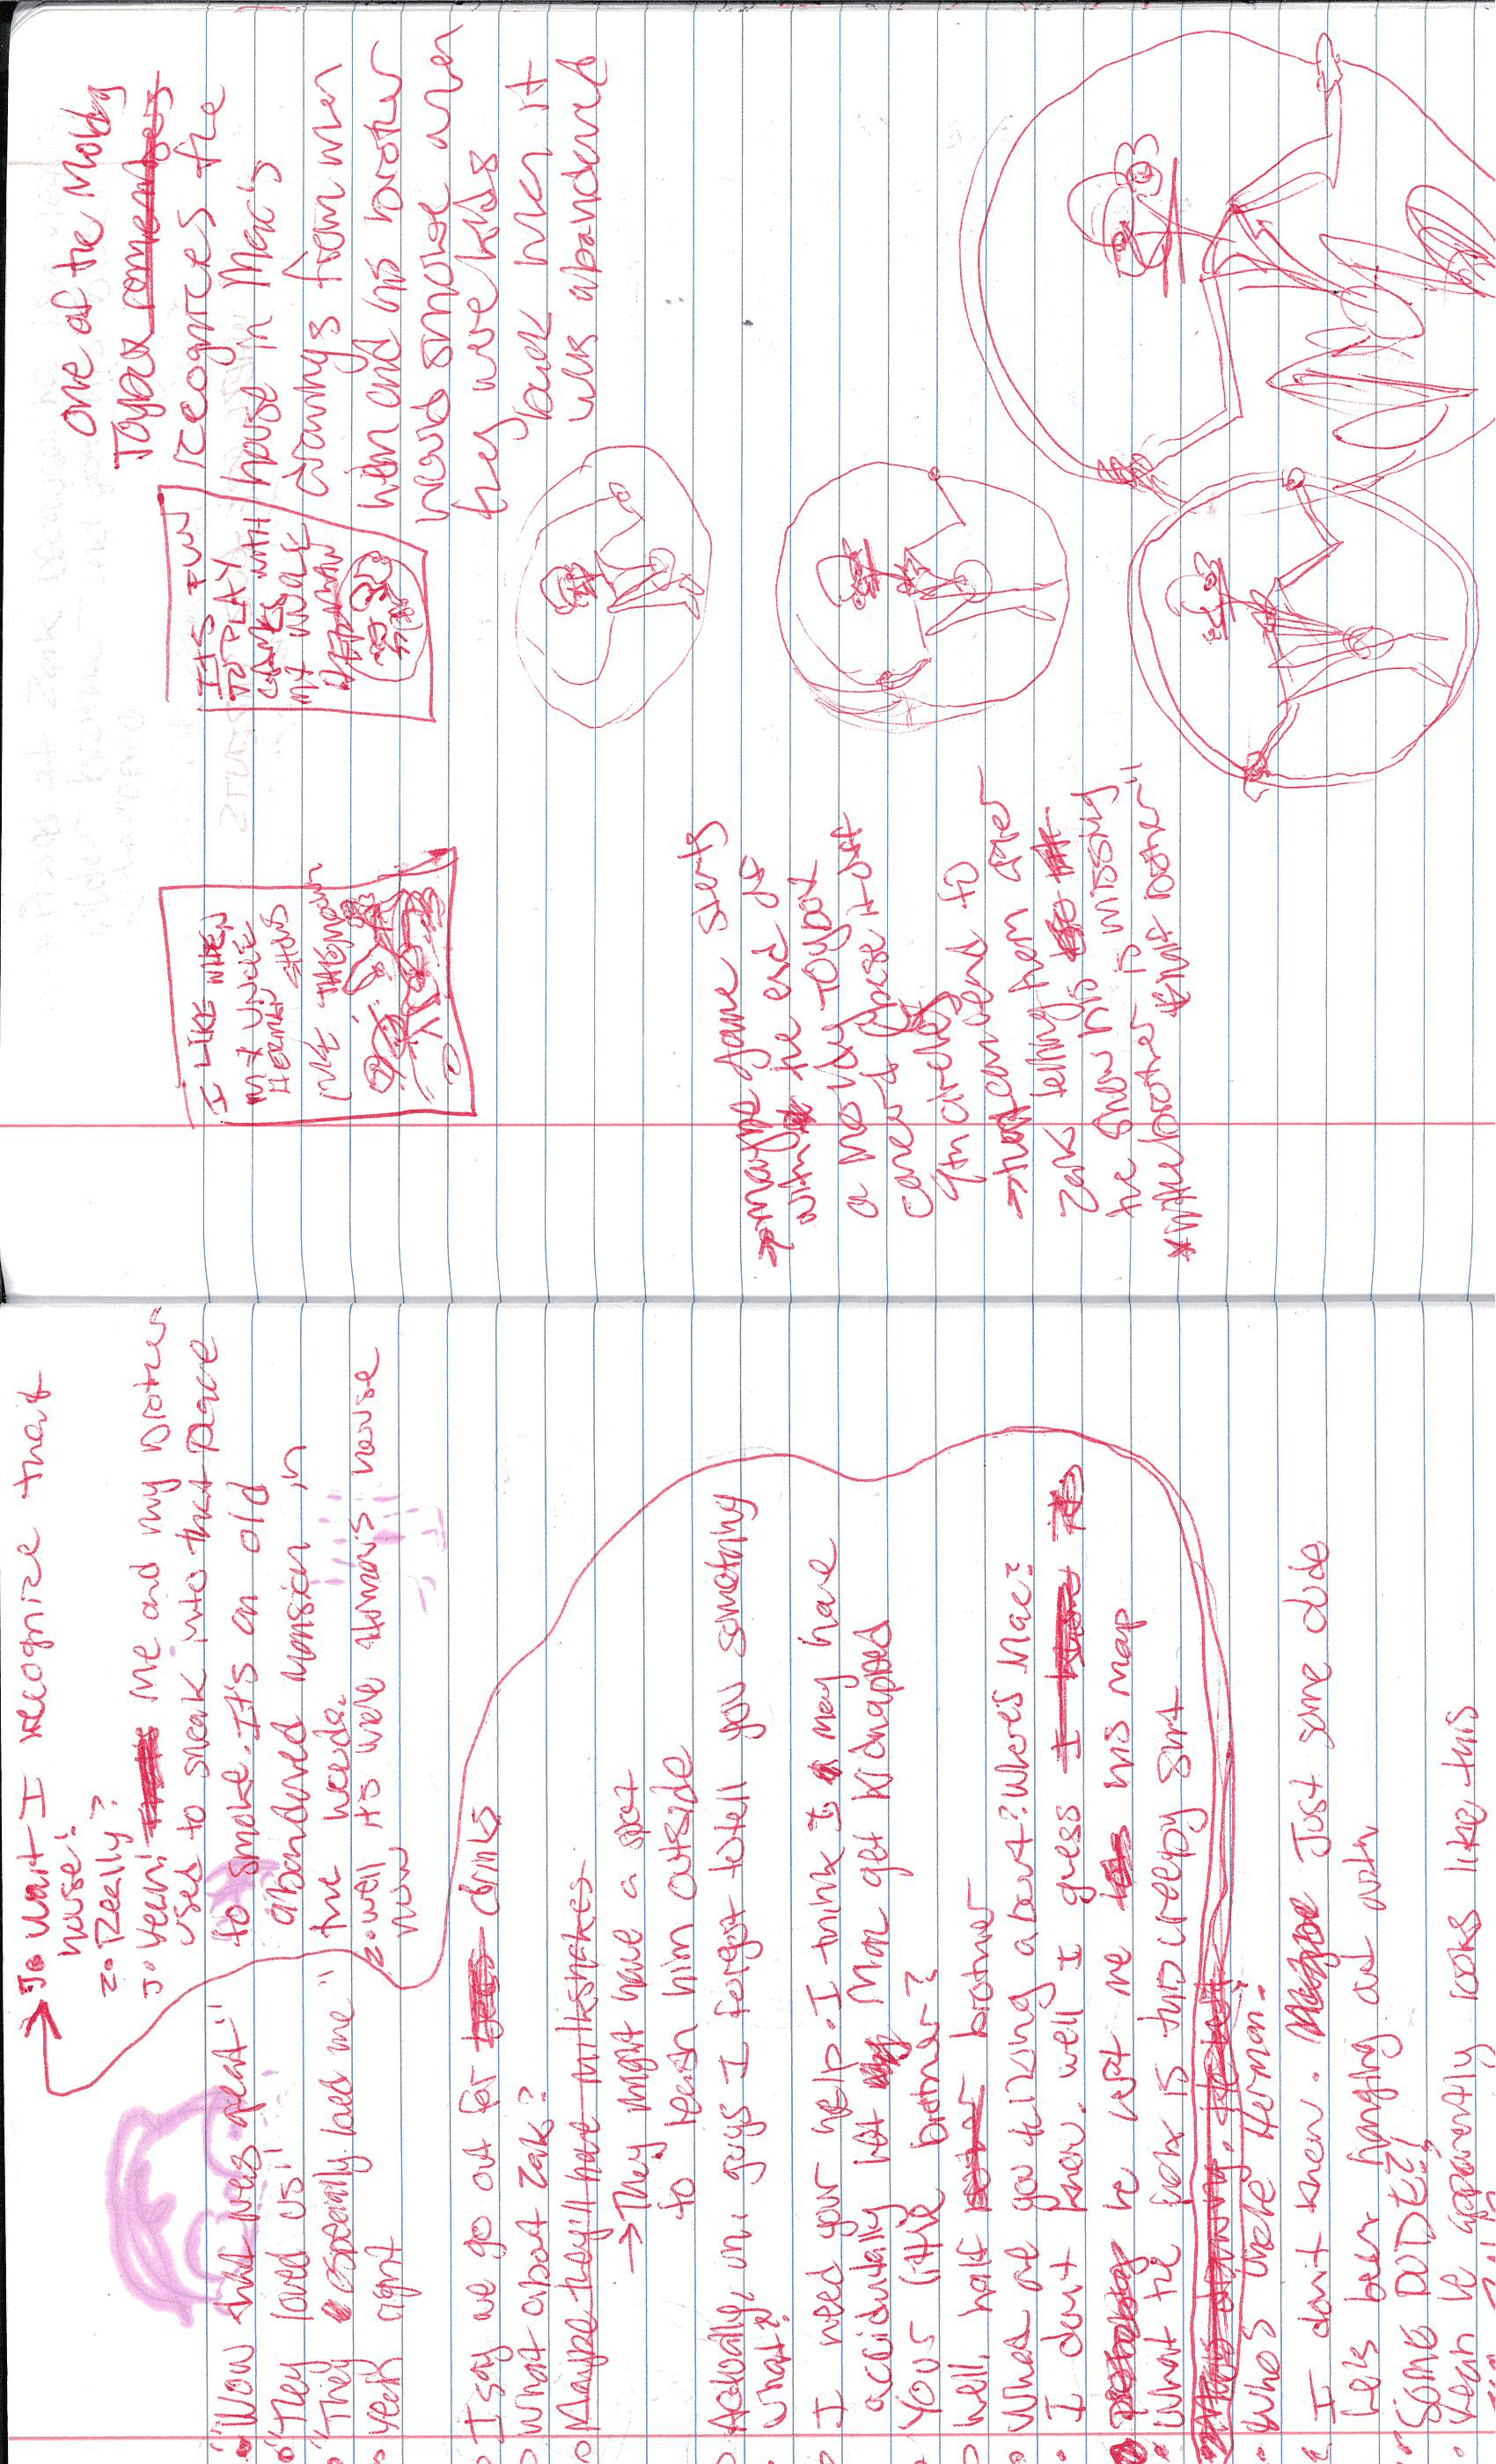 Jo Wait I recognize that
house!
Zo Really?
Jo Yeah! me and my brother
used to sneak into that place
to smoke. It's an old
abandoned mansion in
the woods.
Zo well it's uncle Herman's house
now
"Wow that was great!"
"They loved us!"
"They especially loved me"
Yeah right
I say we go out for drinks
What about Zak?
Maybe they'll have milkshakes.
→ They might have a spot
to leash him outside
Actually, um, guys I forgot to tell you something
What?
I need your help. I think I may have
accidentally let Mac get kidnapped
Your little brother?
Well, half brother
What are you talking about? Where's Mac?
I don't know. well I guess
he left me his map
What the fuck is this creepy shit
Who's Uncle Herman?
I don't know. Just some dude
he's been hanging out with
SOME DUDE?!
Yeah he apparently looks like this
One of the Moldy
Toybox remembers
recognizes the
house in Mac's
drawings from when
him and his brother
would smoke when
they were kids
back when it
was abandoned
ITS FUN
TO PLAY
GAMES WITH
MY UNCLE
HERMAN
I LIKE WHEN
MY UNCLE
HERMAN
SHOWS
ME THE
→ maybe game starts
with the end of
a moldy Toybox
concert
→ can end to
Zak telling them after
the show his
brother is missing
*little brother *half brother"